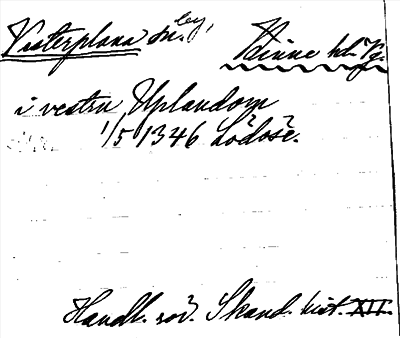 Vesterplana sn. by, Kinne hd. Vg.
i vestra Uplandom
1/5 1346 Lödöse.
Handl. rör. Skand. hist. XII.